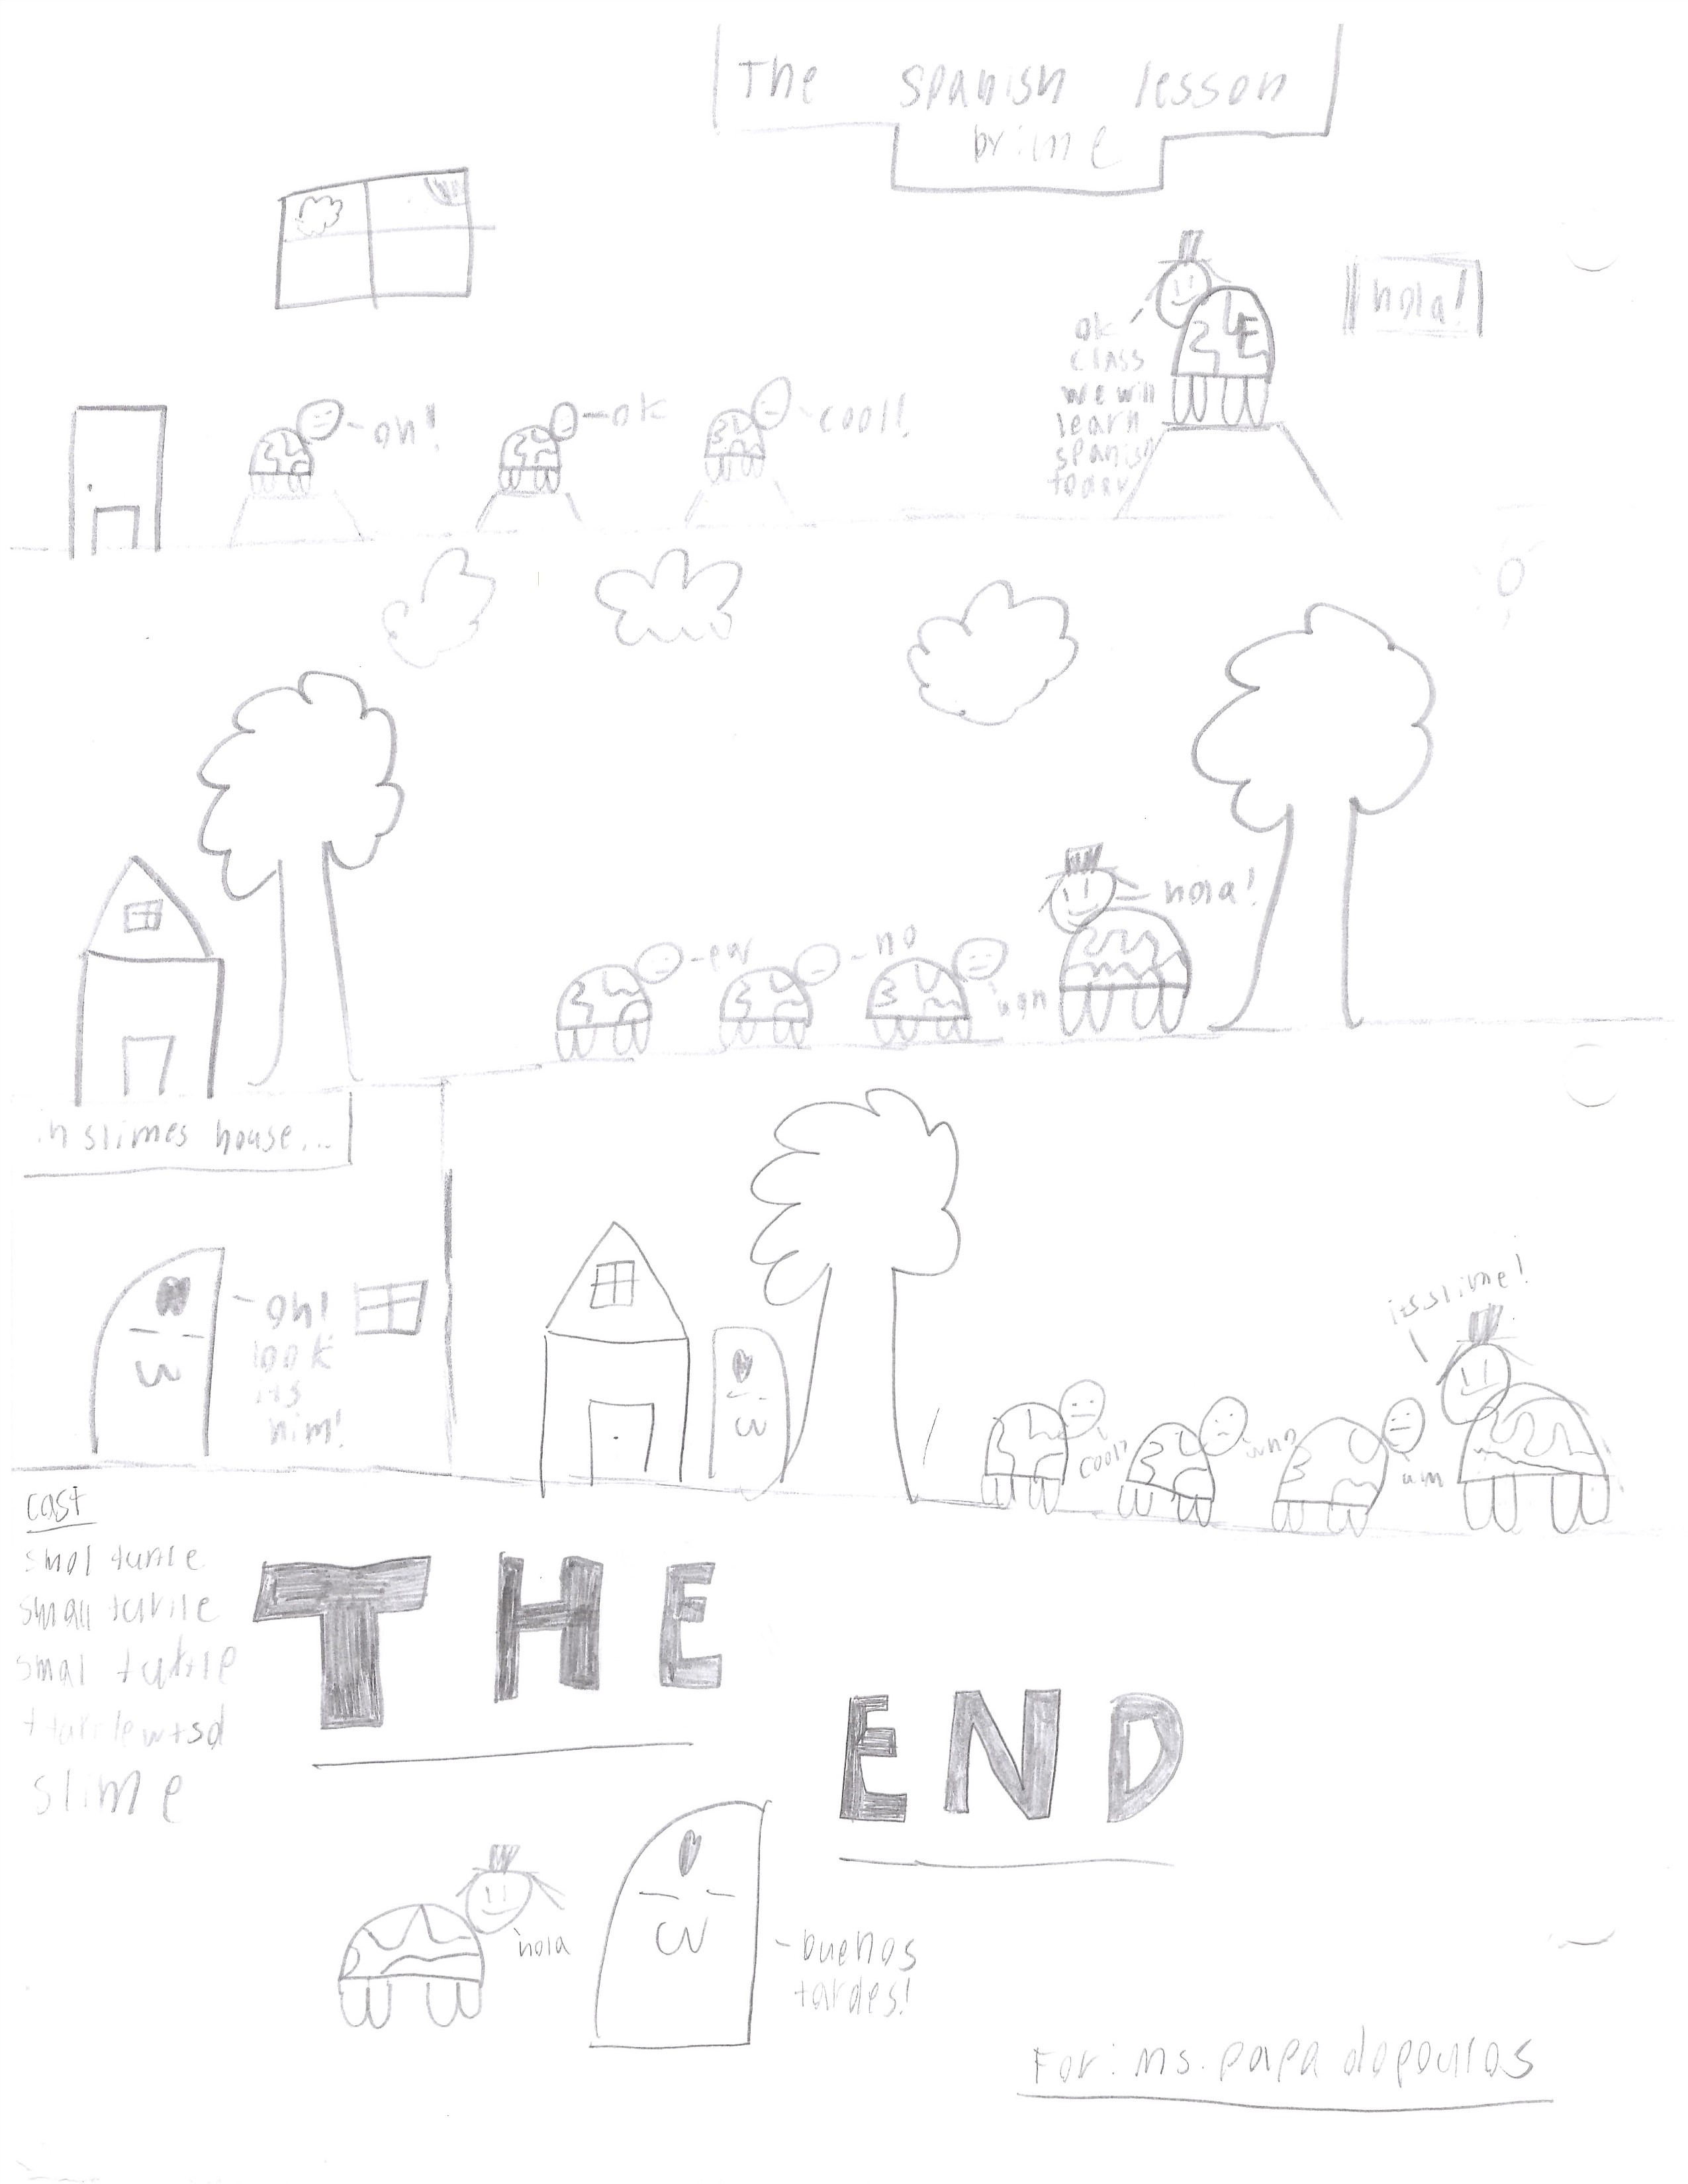 The spanish lesson
by: me
hola!
ok
class
we will
learn
spanish
today
oh!
ok
cool!
hola!
ew
no
ugh
in slimes house...
oh!
look
its
him!
its slime!
cool?
um
cast
smol turtle
small turtle
smal turtle
slime
THE
END
hola
buenos
tardes!
For: ms. papadopoulos